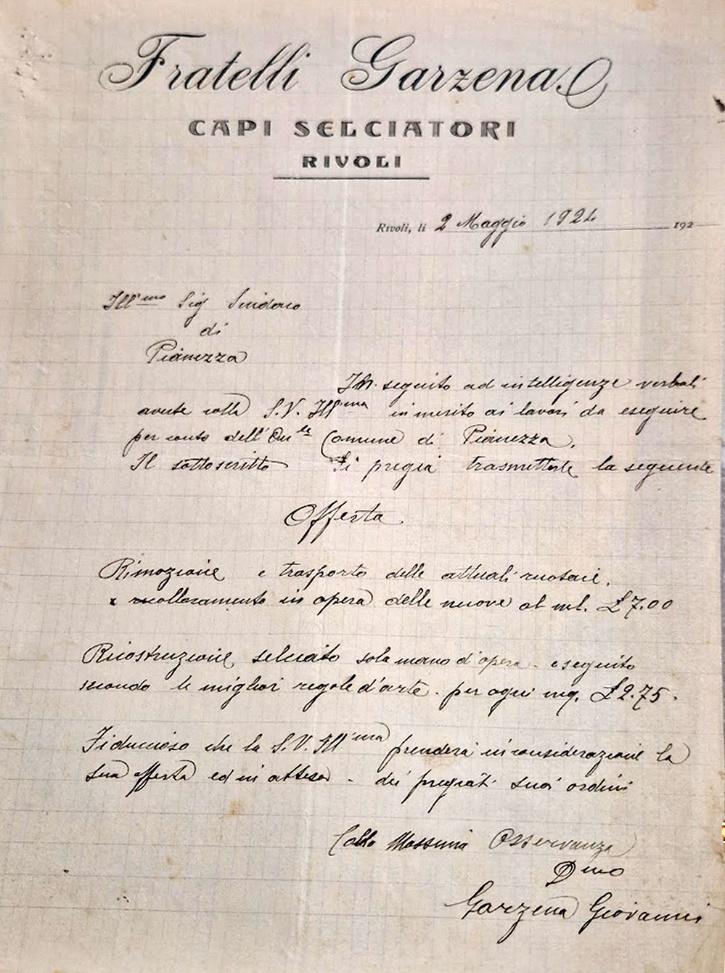 Fratelli Garzena
CAPI SELCIATORI
RIVOLI
Rivoli, li 2 Maggio 1924 192
Ill.mo Sig Sindaco
di
Pianezza
In seguito ad intelligenze verbali
avute colla S.V. Ill.ma in merito ai lavori da eseguire
per conto dell'On.le Comune di Pianezza.
Il sottoscritto Si pregia trasmetterle la seguente
Offerta
Rimozione e trasporto delle attuali ruotaie.
e ricollocamento in opera delle nuove al ml. £ 7.00
Ricostruzione selciato sola mano d'opera eseguito
secondo le migliori regole d'arte. per ogni mq. £ 2.75.
Fiducioso che la S.V. Ill.ma prenderà in considerazione la
sua offerta ed in attesa dei pregiati suoi ordini
Colla Massima Osservanza
Dmo
Garzena Giovanni